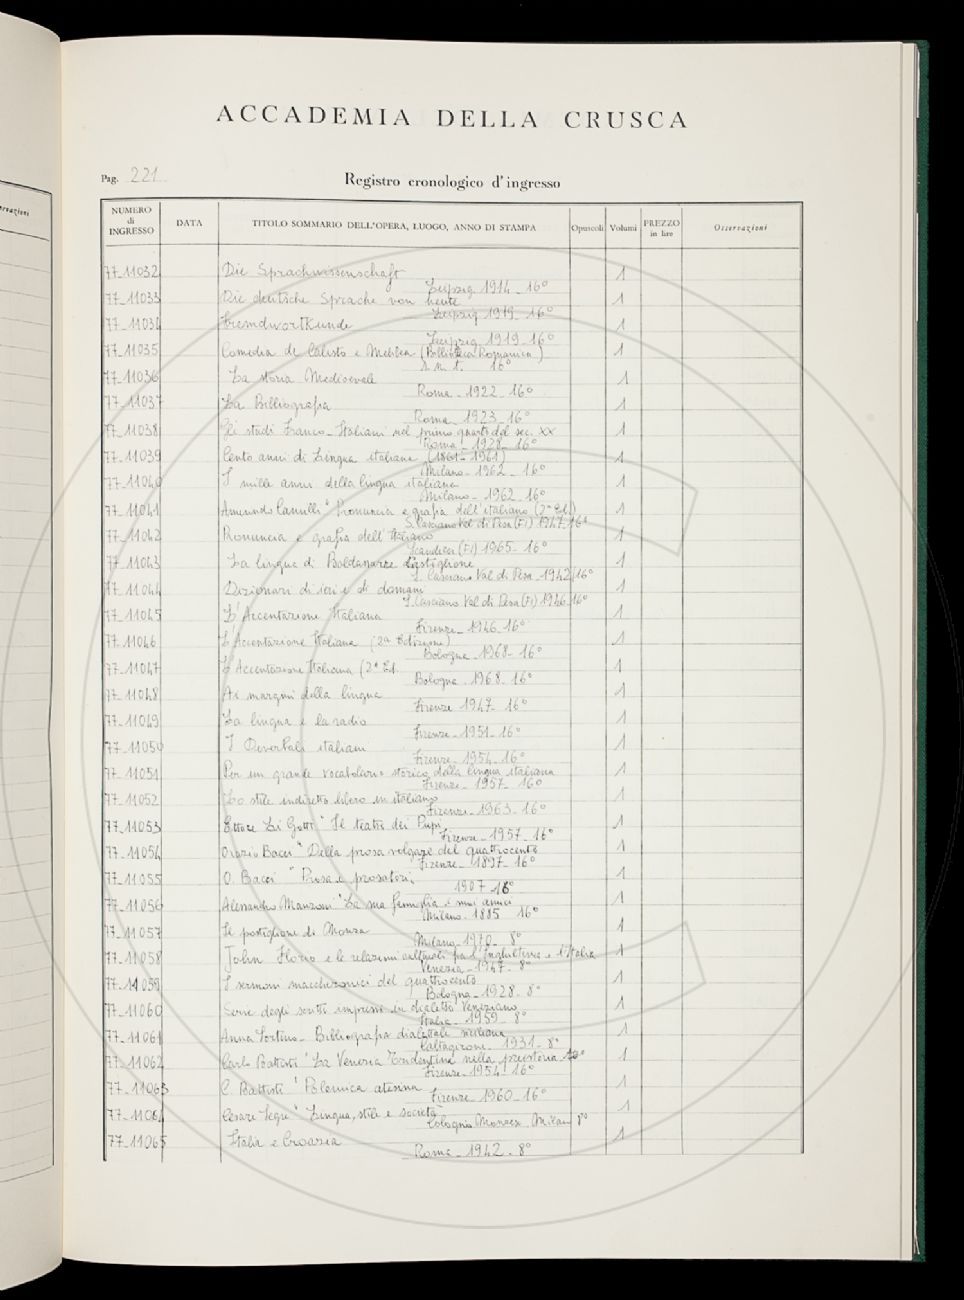 ACCADEMIA DELLA CRUSCA
Pag. 221
Registro cronologico d'ingresso
NUMERO di INGRESSO DATA TITOLO SOMMARIO DELL'OPERA, LUOGO, ANNO DI STAMPA Opuscoli Volumi PREZZO in lire Osservazioni
77-11032 Die Sprachwissenschaft 1
Leipzig 1914 - 16°
77-11033 Die deutsche Sprache von heute 1
Leipzig 1919 - 16°
77-11034 Fremdwortkunde 1
Leipzig 1919 - 16°
77-11035 Comedia de Calisto e Melibea (Biblioteca Romanica) 1
s.n.t. 16°
77-11036 La storia Medioevale 1
Roma - 1922 - 16°
77-11037 La Bibliografia 1
Roma - 1923 - 16°
77-11038 Gli studi Franco-Italiani nel primo quarto del sec. XX 1
Roma - 1928 - 16°
77-11039 Cento anni di Lingua italiana (1861-1961) 1
Milano - 1962 - 16°
77-11040 I mille anni della lingua italiana 1
Milano - 1962 - 16°
77-11041 Amerindo Camilli "Pronuncia e grafia dell'italiano (2ª Ed.) 1
S. Casciano Val di Pesa (FI) 1947 - 16°
77-11042 Pronuncia e grafia dell'Italiano 1
Scandicci (FI) 1965 - 16°
77-11043 La lingua di Baldassarre Castiglione 1
S. Casciano Val di Pesa 1942 - 16°
77-11044 Dizionari di ieri e di domani 1
S. Casciano Val di Pesa (FI) 1946 - 16°
77-11045 L'Accentazione Italiana 1
Firenze - 1946 - 16°
77-11046 L'Accentazione Italiana (2ª Edizione) 1
Bologna - 1968 - 16°
77-11047 L'Accentazione Italiana (2ª Ed. 1
Bologna 1968 - 16°
77-11048 Ai margini della lingua 1
Firenze 1947 - 16°
77-11049 La lingua e la radio 1
Firenze - 1951 - 16°
77-11050 I Deverbali italiani 1
Firenze - 1954 - 16°
77-11051 Per un grande vocabolario storico della lingua italiana 1
Firenze - 1957 - 16°
77-11052 Lo stile indiretto libero in italiano 1
Firenze - 1963 - 16°
77-11053 Ettore Li Gotti "Il teatro dei Pupi 1
Firenze - 1957 - 16°
77-11054 Orazio Bacci "Della prosa volgare del quattrocento 1
Firenze - 1897 - 16°
77-11055 O. Bacci "Prosa e prosatori 1
1907 - 16°
77-11056 Alessandro Manzoni "La sua famiglia e suoi amici 1
Milano - 1885 16°
77-11057 Il postiglione di Monza 1
Milano - 1970 - 8°
77-11058 John Florio e le relazioni culturali fra l'Inghilterra e l'Italia 1
Venezia - 1947 - 8°
77-11059 I sermoni maccheronici del quattrocento 1
Bologna - 1928 - 8°
77-11060 Serie degli scritti impressi in dialetto Veneziano 1
Italia - 1959 - 8°
77-11061 Anna Fortino - Bibliografia dialettale siciliana 1
Caltagirone - 1931 - 8°
77-11062 Carlo Battisti "La Venezia Tridentina nella preistoria 1
Firenze - 1954 - 16°
77-11063 C. Battisti "Polemica atesina 1
Firenze - 1960 - 16°
77-11064 Cesare Segre "Lingua, stile e società 1
Cologno Monzese Milan 8°
77-11065 Italia e Croazia 1
Roma - 1942 - 8°